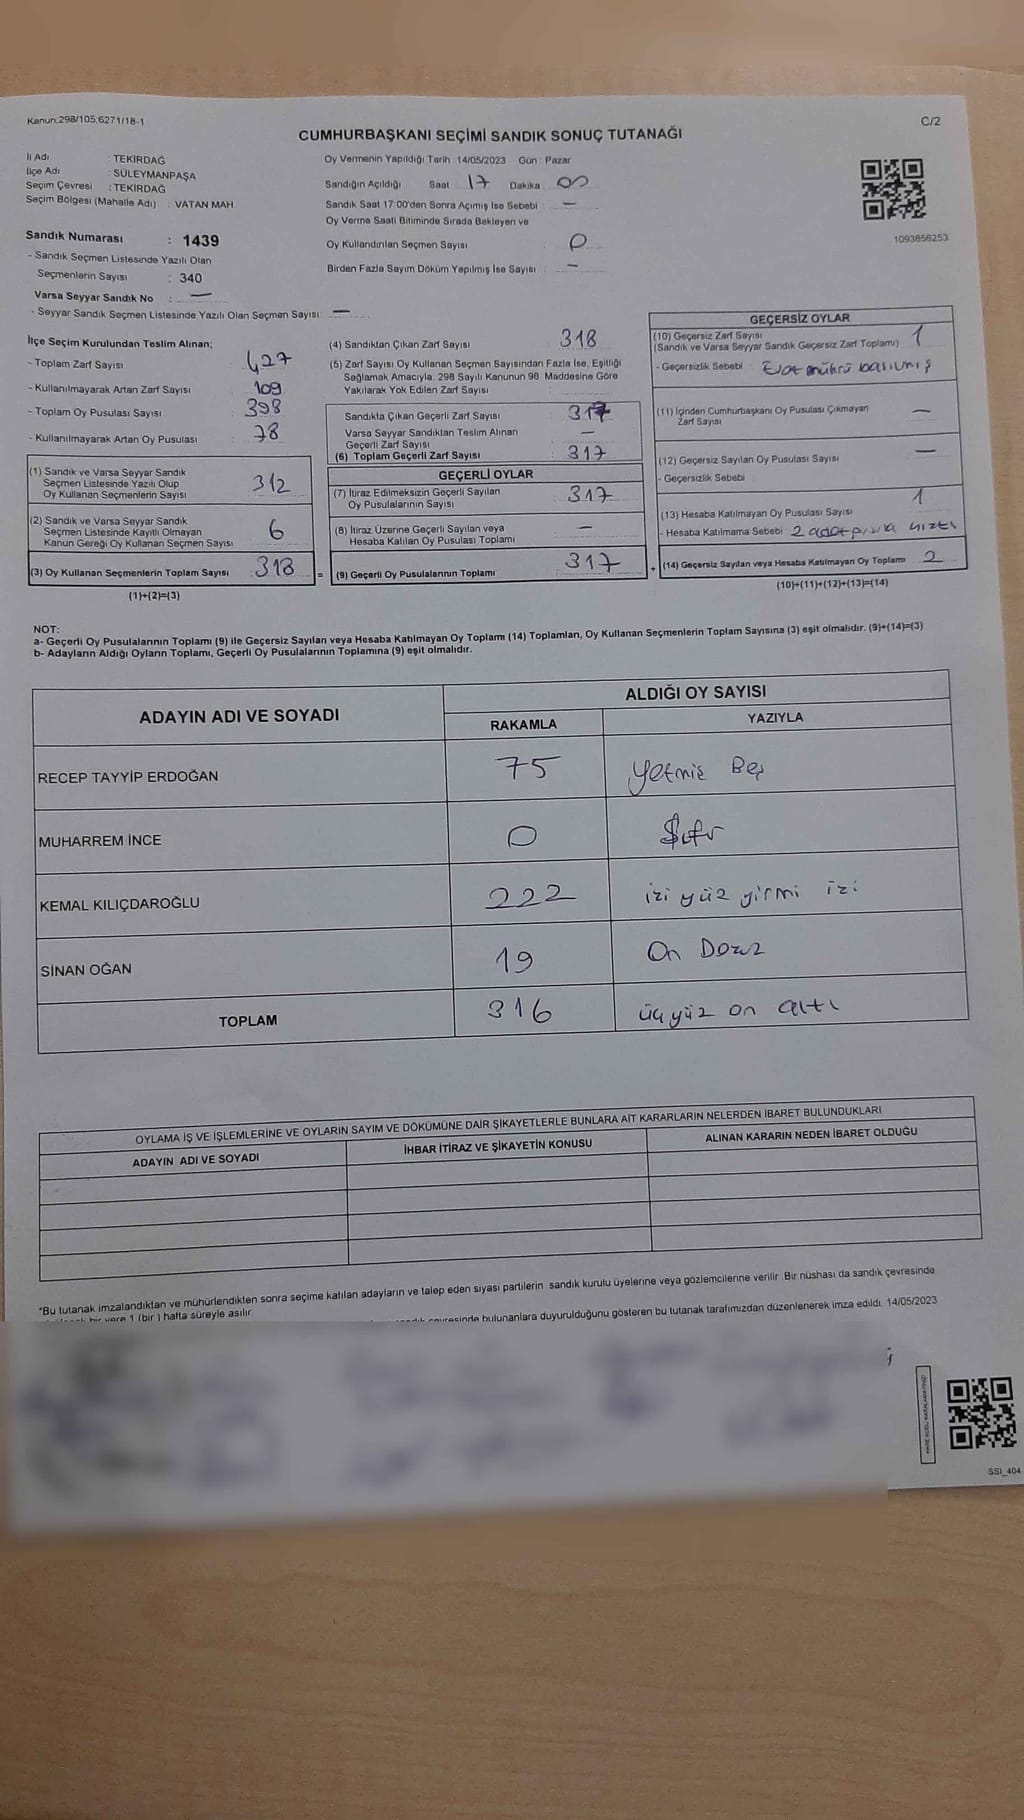 Kanun:298/105;6271/18-1
C/2
CUMHURBAŞKANI SEÇİMİ SANDIK SONUÇ TUTANAĞI
İl Adı : TEKİRDAĞ
İlçe Adı : SÜLEYMANPAŞA
Seçim Çevresi : TEKİRDAĞ
Seçim Bölgesi (Mahalle Adı) : VATAN MAH.
Oy Vermenin Yapıldığı Tarih : 14/05/2023 Gün : Pazar
Sandığın Açıldığı Saat 17 Dakika 00
Sandık Saat 17:00'den Sonra Açımış İse Sebebi : —
Oy Verme Saati Bitiminde Sırada Bekleyen ve
Oy Kullandırılan Seçmen Sayısı 0
Birden Fazla Sayım Döküm Yapılmış İse Sayısı : —
1093856253
Sandık Numarası : 1439
- Sandık Seçmen Listesinde Yazılı Olan
Seçmenlerin Sayısı : 340
Varsa Seyyar Sandık No : —
- Seyyar Sandık Seçmen Listesinde Yazılı Olan Seçmen Sayısı : —
İlçe Seçim Kurulundan Teslim Alınan;
- Toplam Zarf Sayısı : 427
- Kullanılmayarak Artan Zarf Sayısı : 109
- Toplam Oy Pusulası Sayısı : 398
- Kullanılmayarak Artan Oy Pusulası : 78
(1) Sandık ve Varsa Seyyar Sandık
Seçmen Listesinde Yazılı Olup
Oy Kullanan Seçmenlerin Sayısı 312
(2) Sandık ve Varsa Seyyar Sandık
Seçmen Listesinde Kayıtlı Olmayan
Kanun Gereği Oy Kullanan Seçmen Sayısı 6
(3) Oy Kullanan Seçmenlerin Toplam Sayısı 318
(1)+(2)=(3)
(4) Sandıktan Çıkan Zarf Sayısı 318
(5) Zarf Sayısı Oy Kullanan Seçmen Sayısından Fazla İse, Eşitliği
Sağlamak Amacıyla, 298 Sayılı Kanunun 98. Maddesine Göre
Yakılarak Yok Edilen Zarf Sayısı :
Sandıkta Çıkan Geçerli Zarf Sayısı 317
Varsa Seyyar Sandıktan Teslim Alınan
Geçerli Zarf Sayısı —
(6) Toplam Geçerli Zarf Sayısı 317
GEÇERLİ OYLAR
(7) İtiraz Edilmeksizin Geçerli Sayılan
Oy Pusulalarının Sayısı 317
(8) İtiraz Üzerine Geçerli Sayılan veya
Hesaba Katılan Oy Pusulası Toplamı —
= (9) Geçerli Oy Pusulalarının Toplamı 317
GEÇERSİZ OYLAR
(10) Geçersiz Zarf Sayısı
(Sandık ve Varsa Seyyar Sandık Geçersiz Zarf Toplamı) 1
- Geçersizlik Sebebi : Evet mührü basılmış
(11) İçinden Cumhurbaşkanı Oy Pusulası Çıkmayan
Zarf Sayısı —
(12) Geçersiz Sayılan Oy Pusulası Sayısı —
- Geçersizlik Sebebi
(13) Hesaba Katılmayan Oy Pusulası Sayısı 1
- Hesaba Katılmama Sebebi 2 adet
+ (14) Geçersiz Sayılan veya Hesaba Katılmayan Oy Toplamı 2
(10)+(11)+(12)+(13)=(14)
NOT:
a- Geçerli Oy Pusulalarının Toplamı (9) ile Geçersiz Sayılan veya Hesaba Katılmayan Oy Toplamı (14) Toplamları, Oy Kullanan Seçmenlerin Toplam Sayısına (3) eşit olmalıdır. (9)+(14)=(3)
b- Adayların Aldığı Oyların Toplamı, Geçerli Oy Pusulalarının Toplamına (9) eşit olmalıdır.
ADAYIN ADI VE SOYADI
ALDIĞI OY SAYISI
RAKAMLA YAZIYLA
RECEP TAYYİP ERDOĞAN 75 Yetmiş Beş
MUHARREM İNCE 0 Sıfır
KEMAL KILIÇDAROĞLU 222 iki yüz yirmi iki
SİNAN OĞAN 19 On Dokuz
TOPLAM 316 üçyüz on altı
OYLAMA İŞ VE İŞLEMLERİNE VE OYLARIN SAYIM VE DÖKÜMÜNE DAİR ŞİKAYETLERLE BUNLARA AİT KARARLARIN NELERDEN İBARET BULUNDUKLARI
ADAYIN ADI VE SOYADI İHBAR İTİRAZ VE ŞİKAYETİN KONUSU ALINAN KARARIN NEDEN İBARET OLDUĞU
*Bu tutanak imzalandıktan ve mühürlendikten sonra seçime katılan adayların ve talep eden siyasi partilerin sandık kurulu üyelerine veya gözlemcilerine verilir. Bir nüshası da sandık çevresinde
bir yere 1 (bir) hafta süreyle asılır.
çevresinde bulunanlara duyurulduğunu gösteren bu tutanak tarafımızdan düzenlenerek imza edildi. 14/05/2023
SSI_404